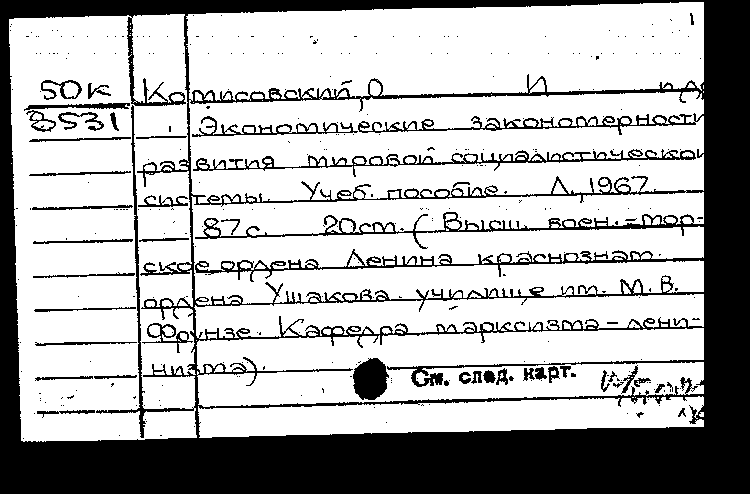 1
50к Комисовский, О И и др
3531 Экономические закономерности
развития мировой социалистической
системы. Учеб. пособие. Л., 1967.
87с. 20см. (Высш. воен.=мор-
ское ордена Ленина краснознам.
ордена Ушакова училище им. М. В.
Фрунзе. Кафедра марксизма-лени-
низма).
См. след. карт.